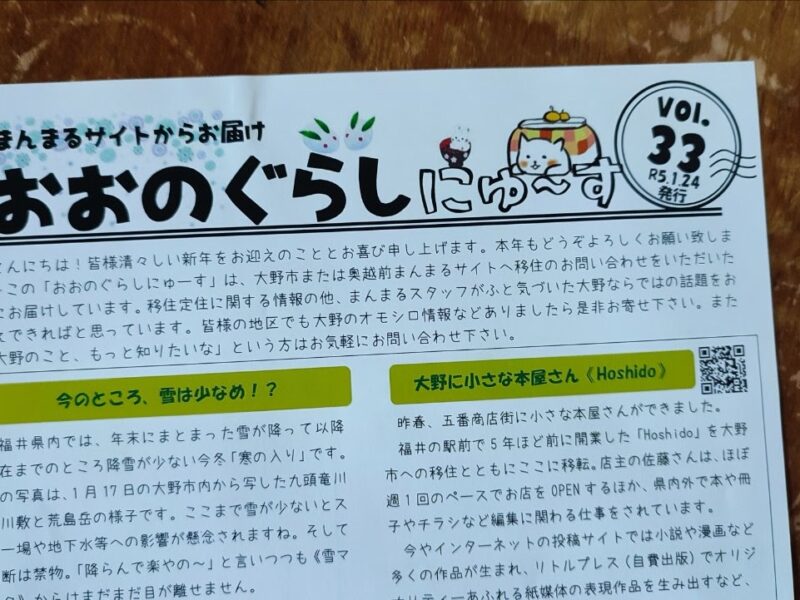 まんまるサイトからお届け
おおのぐらしにゅ〜す
VOL.
33
R5.1.24
発行
こんにちは！皆様清々しい新年をお迎えのこととお喜び申し上げます。本年もどうぞよろしくお願い致しま
この「おおのぐらしにゅーす」は、大野市または奥越前まんまるサイトへ移住のお問い合わせをいただいた
にお届けしています。移住定住に関する情報の他、まんまるスタッフがふと気づいた大野ならではの話題をお
できればと思っています。皆様の地区でも大野のオモシロ情報などありましたら是非お寄せ下さい。また
大野のこと、もっと知りたいな」という方はお気軽にお問い合わせ下さい。
今のところ、雪は少なめ！？
福井県内では、年末にまとまった雪が降って以降
在までのところ降雪が少ない今冬「寒の入り」です。
の写真は、1月17日の大野市内から写した九頭竜川
川敷と荒島岳の様子です。ここまで雪が少ないとス
ー場や地下水等への影響が懸念されますね。そして
断は禁物。「降らんで楽やの〜」と言いつつも《雪マ
からはまだまだ目が離せません。
大野に小さな本屋さん《Hoshido》
昨春、五番商店街に小さな本屋さんができました。
福井の駅前で5年ほど前に開業した「Hoshido」を大野
市への移住とともにここに移転。店主の佐藤さんは、ほぼ
週1回のペースでお店をOPENするほか、県内外で本や冊
子やチラシなど編集に関わる仕事をされています。
今やインターネットの投稿サイトでは小説や漫画など
多くの作品が生まれ、リトルプレス（自費出版）でオリジ
ナリティーあふれる紙媒体の表現作品を生み出すなど、